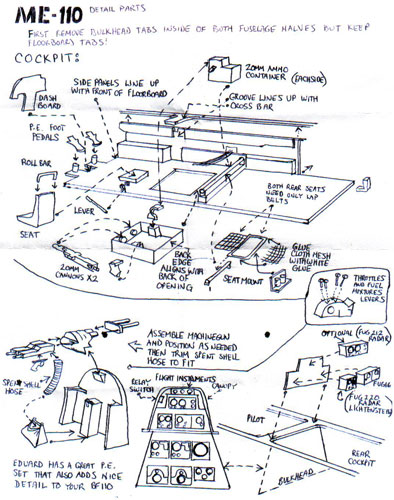 ME-110 DETAIL PARTS
FIRST REMOVE BULKHEAD TABS INSIDE OF BOTH FUSELAGE HALVES BUT KEEP
FLOORBOARD TABS!
COCKPIT:
20MM AMMO
CONTAINER (EACHSIDE)
SIDE PANELS LINE UP
WITH FRONT OF FLOORBOARD
GROOVE LINES UP WITH
CROSS BAR
DASH
BOARD
P.E. FOOT
PEDALS
ROLL BAR
SEAT
LEVER
BOTH REAR SEATS
NEED ONLY LAP
BELTS
20MM
CANNONS X2
BACK
EDGE
ALIGNS WITH
BACK OF
OPENING
SEAT MOUNT
GLUE
CLOTH MESH
WITH WHITE
GLUE
THROTTLES
AND FUEL
MIXTURES
LEVERS
ASSEMBLE MACHINEGUN
AND POSITION AS NEEDED
THEN TRIM SPENT SHELL
HOSE TO FIT
OPTIONAL
(FUG 212
RADAR)
SPENT SHELL
HOSE
RELAY
SWITCH
FLIGHT INSTRUMENTS
CANOPY
FUG16
FUG 220
RADAR
(LICHTENSTEIN)
PILOT
REAR
COCKPIT
BULKHEAD
EDUARD HAS A GREAT P.E.
SET THAT ALSO ADDS NICE
DETAIL TO YOUR BF110